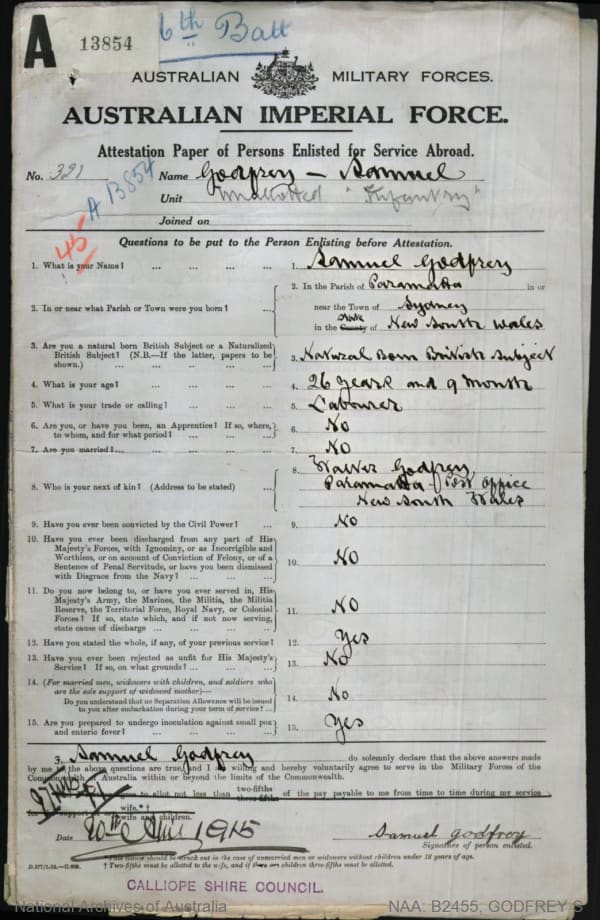 A
13854
6th Batt
AUSTRALIAN MILITARY FORCES.
AUSTRALIAN IMPERIAL FORCE.
Attestation Paper of Persons Enlisted for Service Abroad.
No. 321 Name Godfrey - Samuel
A 13854
Unit Unallotted "Infantry"
Joined on
45
Questions to be put to the Person Enlisting before Attestation.
1. What is your Name? ... ... ... ... 1. Samuel Godfrey
2. In or near what Parish or Town were you born? ...
2. In the Parish of Paramatta in or
near the Town of Sydney
in the County State of New South Wales
3. Are you a natural born British Subject or a Naturalized
British Subject? (N.B.—If the latter, papers to be
shown.) 3. Natural Born British Subject
4. What is your age? ... ... ... ... 4. 26 years and 9 Months
5. What is your trade or calling? ... ... ... 5. Labourer
6. Are you, or have you been, an Apprentice? If so, where,
to whom, and for what period? ... ... 6. No
7. Are you married? ... 7. No
8. Who is your next of kin? (Address to be stated) ...
8. Walter Godfrey
Paramatta Post Office
New South Wales
9. Have you ever been convicted by the Civil Power? ... 9. No
10. Have you ever been discharged from any part of His
Majesty's Forces, with Ignominy, or as Incorrigible and
Worthless, or on account of Conviction of Felony, or of a
Sentence of Penal Servitude, or have you been dismissed
with Disgrace from the Navy? ... ... ... 10. No
11. Do you now belong to, or have you ever served in, His
Majesty's Army, the Marines, the Militia, the Militia
Reserve, the Territorial Force, Royal Navy, or Colonial
Forces? If so, state which, and if not now serving,
state cause of discharge ... 11. No
12. Have you stated the whole, if any, of your previous service? 12. Yes
13. Have you ever been rejected as unfit for His Majesty's
Service? If so, on what grounds? ... 13. No
14. (For married men, widowers with children, and soldiers who
are the sole support of widowed mother)—
Do you understand that no Separation Allowance will be issued
to you after embarkation during your term of service? ... 14. No
15. Are you prepared to undergo inoculation against small pox
and enteric fever? ... 15. Yes
3. Samuel Godfrey do solemnly declare that the above answers made
by me to the above questions are true, and I am willing and hereby voluntarily agree to serve in the Military Forces of the
Commonwealth of Australia within or beyond the limits of the Commonwealth.
to allot not less than two-fifths three-fifths of the pay payable to me from time to time during my service
for support of wife.* †
wife and children.
Date 1915 Samuel Godfrey
Signature of person enlisted.
* This clause should be struck out in the case of unmarried men or widowers without children under 18 years of age.
† Two-fifths must be allotted to the wife, and if there are children three-fifths must be allotted.
CALLIOPE SHIRE COUNCIL.
National Archives of Australia NAA: B2455, GODFREY S